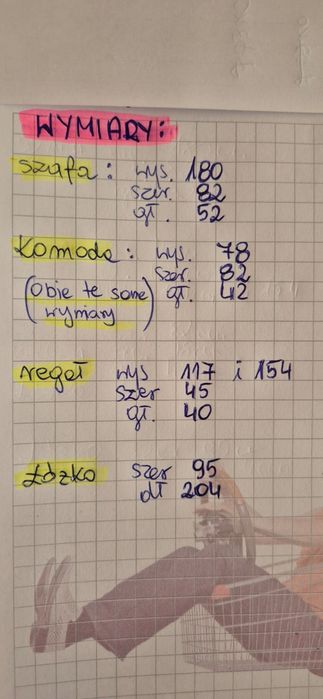 WYMIARY:
szafa: wys. 180
szer. 82
gł. 52
Komoda: wys. 78
szer. 82
(obie te same gł. 42
wymiary)
regał wys 117 i 154
szer 45
gł. 40
Łóżko szer 95
dł 204